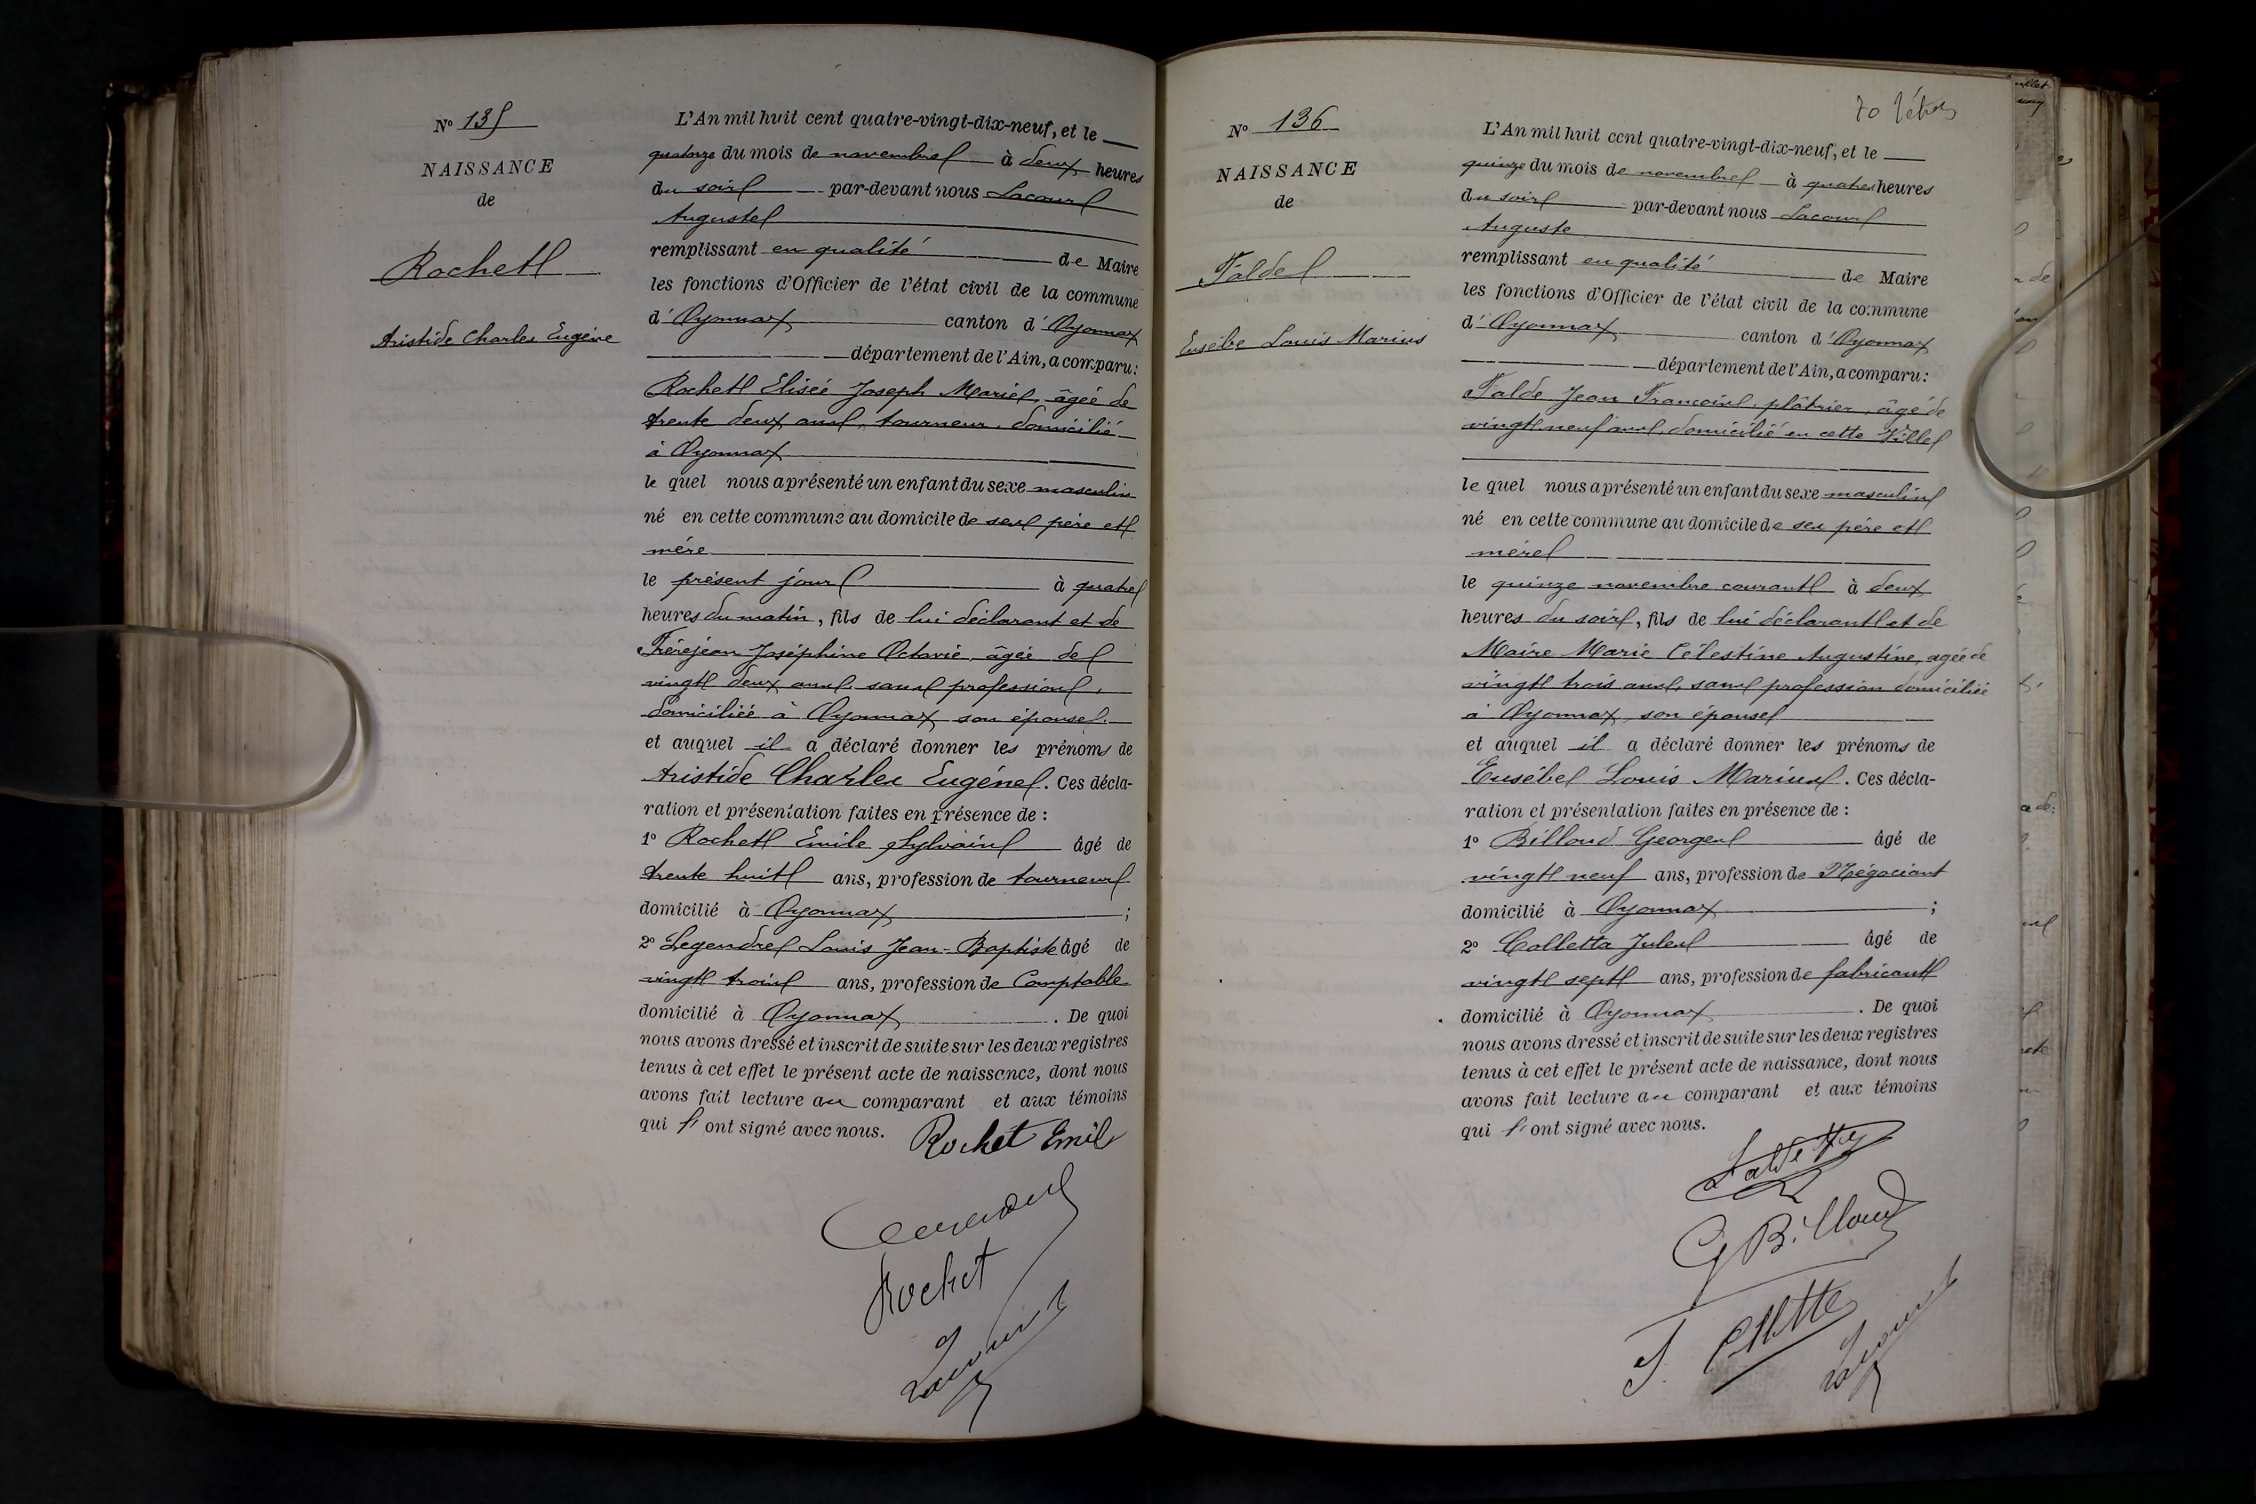 N° 135
NAISSANCE
de
Rochet
Aristide Charles Eugène
L'An mil huit cent quatre-vingt-dix-neuf, et le
quatorze du mois de novembre à deux heures
du soir par-devant nous Lacour
Auguste
remplissant en qualité de Maire
les fonctions d'Officier de l'état civil de la commune
d'Oyonnax canton d'Oyonnax
département de l'Ain, a comparu:
Rochet Elisée Joseph Marie, âgée de
trente deux ans, tourneur, domicilié
à Oyonnax
lequel nous a présenté un enfant du sexe masculin
né en cette commune au domicile de ses père et
mère
le présent jour à quatre
heures du matin, fils de lui déclarant et de
Frèrejean Joséphine Octavie, âgée de
vingt deux ans, sans profession,
domiciliée à Oyonnax son épouse.
et auquel il a déclaré donner les prénoms de
Aristide Charles Eugène. Ces décla-
ration et présentation faites en présence de :
1° Rochet Emile Sylvain âgé de
trente huit ans, profession de tourneur
domicilié à Oyonnax ;
2° Legendre Louis Jean-Baptiste âgé de
vingt trois ans, profession de Comptable
domicilié à Oyonnax . De quoi
nous avons dressé et inscrit de suite sur les deux registres
tenus à cet effet le présent acte de naissance, dont nous
avons fait lecture au comparant et aux témoins
qui l'ont signé avec nous.
Rochet Emile
Rochet
Lacour
N° 136
NAISSANCE
de
Falde
Eusèbe Louis Marius
L'An mil huit cent quatre-vingt-dix-neuf, et le
quinze du mois de novembre à quatres heures
du soir par-devant nous Lacour
Auguste
remplissant en qualité de Maire
les fonctions d'Officier de l'état civil de la commune
d'Oyonnax canton d'Oyonnax
département de l'Ain, a comparu:
Falde Jean François, plâtrier, âgé de
vingt neuf ans, domicilié en cette Ville
lequel nous a présenté un enfant du sexe masculin
né en cette commune au domicile de ses père et
mère
le quinze novembre courant à deux
heures du soir, fils de lui déclarant et de
Maire Marie Célestine Augustine, agée de
vingt trois ans, sans profession domiciliée
à Oyonnax, son épouse
et auquel il a déclaré donner les prénoms de
Eusèbe Louis Marius. Ces décla-
ration et présentation faites en présence de :
1° Billoud Georges âgé de
vingt neuf ans, profession de Négociant
domicilié à Oyonnax ;
2° Colletta Jules âgé de
vingt sept ans, profession de fabricant
domicilié à Oyonnax . De quoi
nous avons dressé et inscrit de suite sur les deux registres
tenus à cet effet le présent acte de naissance, dont nous
avons fait lecture au comparant et aux témoins
qui l'ont signé avec nous.
G Billoud
Lacour